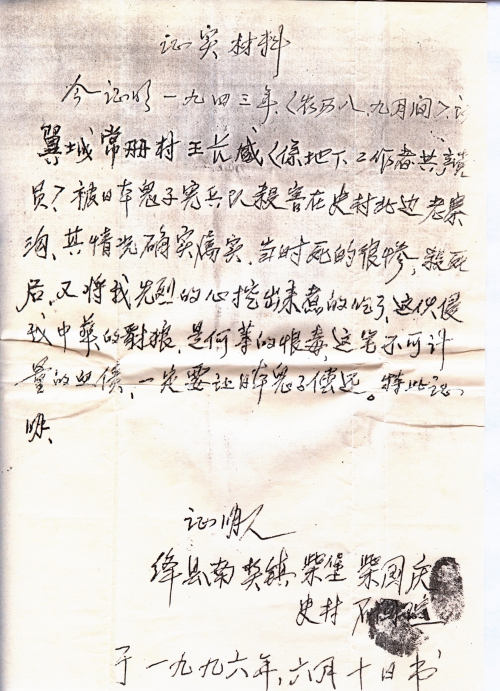 证实材料
今证明一九四三年、(农历八、九月间)、
翼城常册村王长(系地下工作者共党
员)被日本鬼子宪兵队殺害在史村北边老寨
沟、其情况确实属实、当时死的很惨,殺死
后,又将我先烈的心挖出来煮的吃了,这伙侵
我中华的豺狼、是何等的恨毒,这笔不可计
量的血债,一定要让日本鬼子偿还。特此证
明、
证明人
绛县南樊镇柴堡柴国庆
史村
于一九九六年,六月十日书